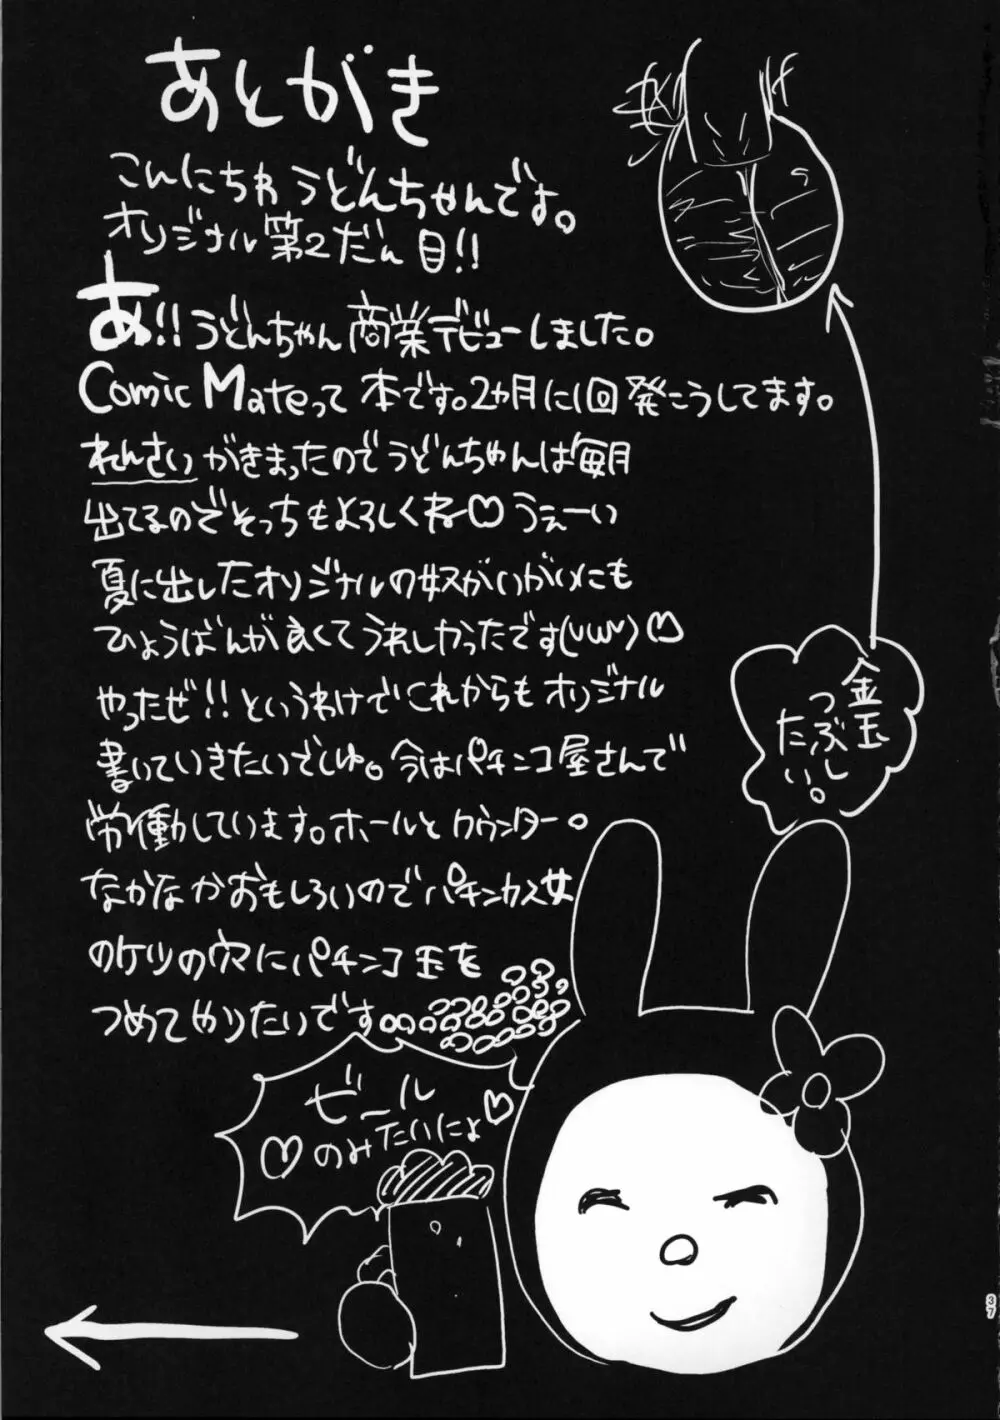 あとがき
こんにちわ うどんちゃんです。
オリジナル第2だん目!!
あ!!うどんちゃん商業デビューしました。
Comic Mateって本です。2ヵ月に1回発こうしてます。
れんさいがきまったのでうどんちゃんは毎月
出てるのでそっちもよろしくね♡うぇーい
夏に出したオリジナルの奴がいがいにも
ひょうばんが良くてうれしかったです(UωU)♡
やったぜ!!というわけでこれからもオリジナル
書いていきたいでしゅ。今はパチンコ屋さんで
労働しています。ホールとカウンター。
なかなかおもしろいのでパチンカス女
のケツの穴にパチンコ玉を
つめてやりたいです
金玉
つぶし
たい。
ビール
♡のみたいにょ♡
37